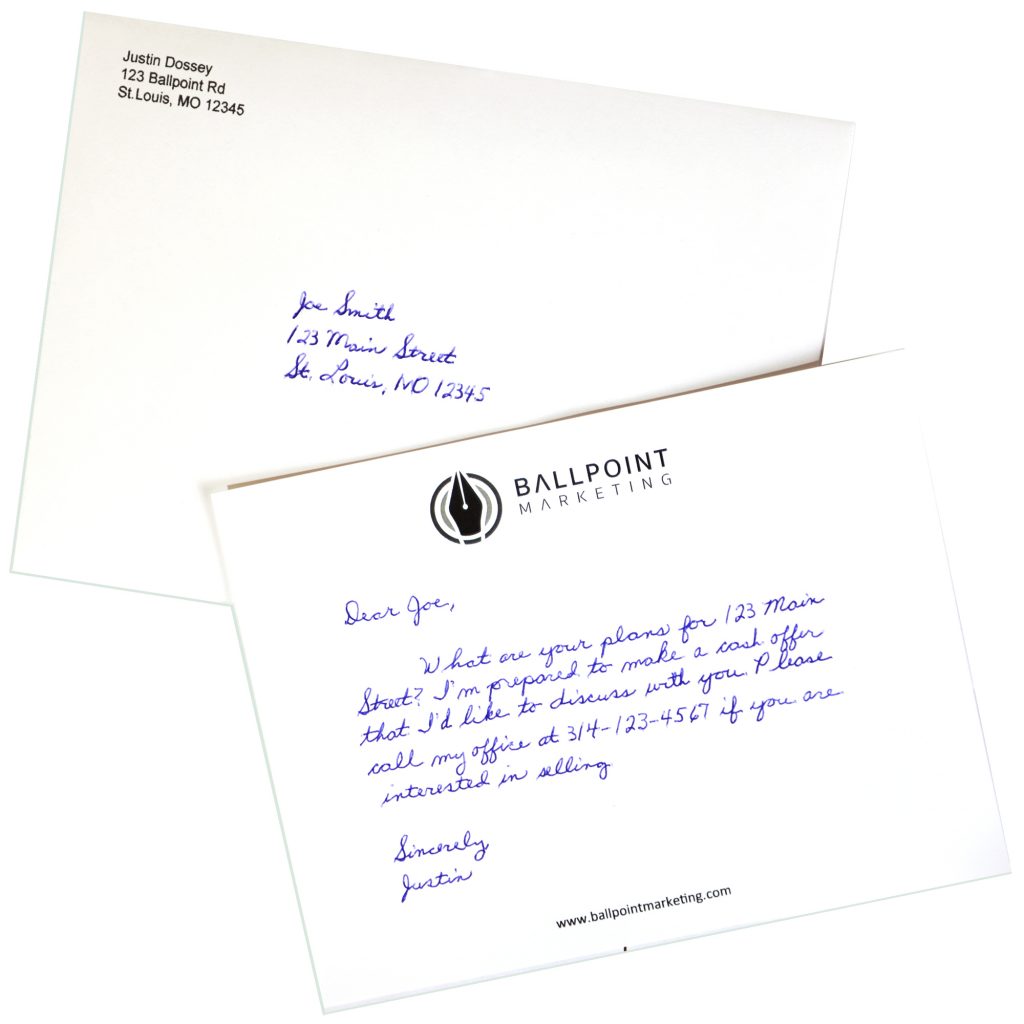 Justin Dossey
123 Ballpoint Rd
St.Louis, MO 12345
Joe Smith
123 Main Street
St. Louis, MO 12345
BALLPOINT
MARKETING
Dear Joe,
What are your plans for 123 Main
Street? I'm prepared to make a cash offer
that I'd like to discuss with you. Please
call my office at 314-123-4567 if you are
interested in selling
Sincerely,
Justin
www.ballpointmarketing.com